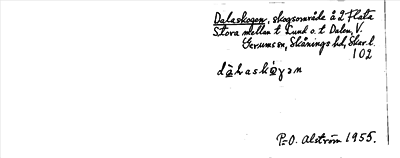 Dalaskogen, skogsområde å 2 Flata
Stora mellan t Lund o. t Dalen, V.
Gerumsen, Skånings hd, Skar. l.
102
dàlaskògen
P-O. Alström 1955.